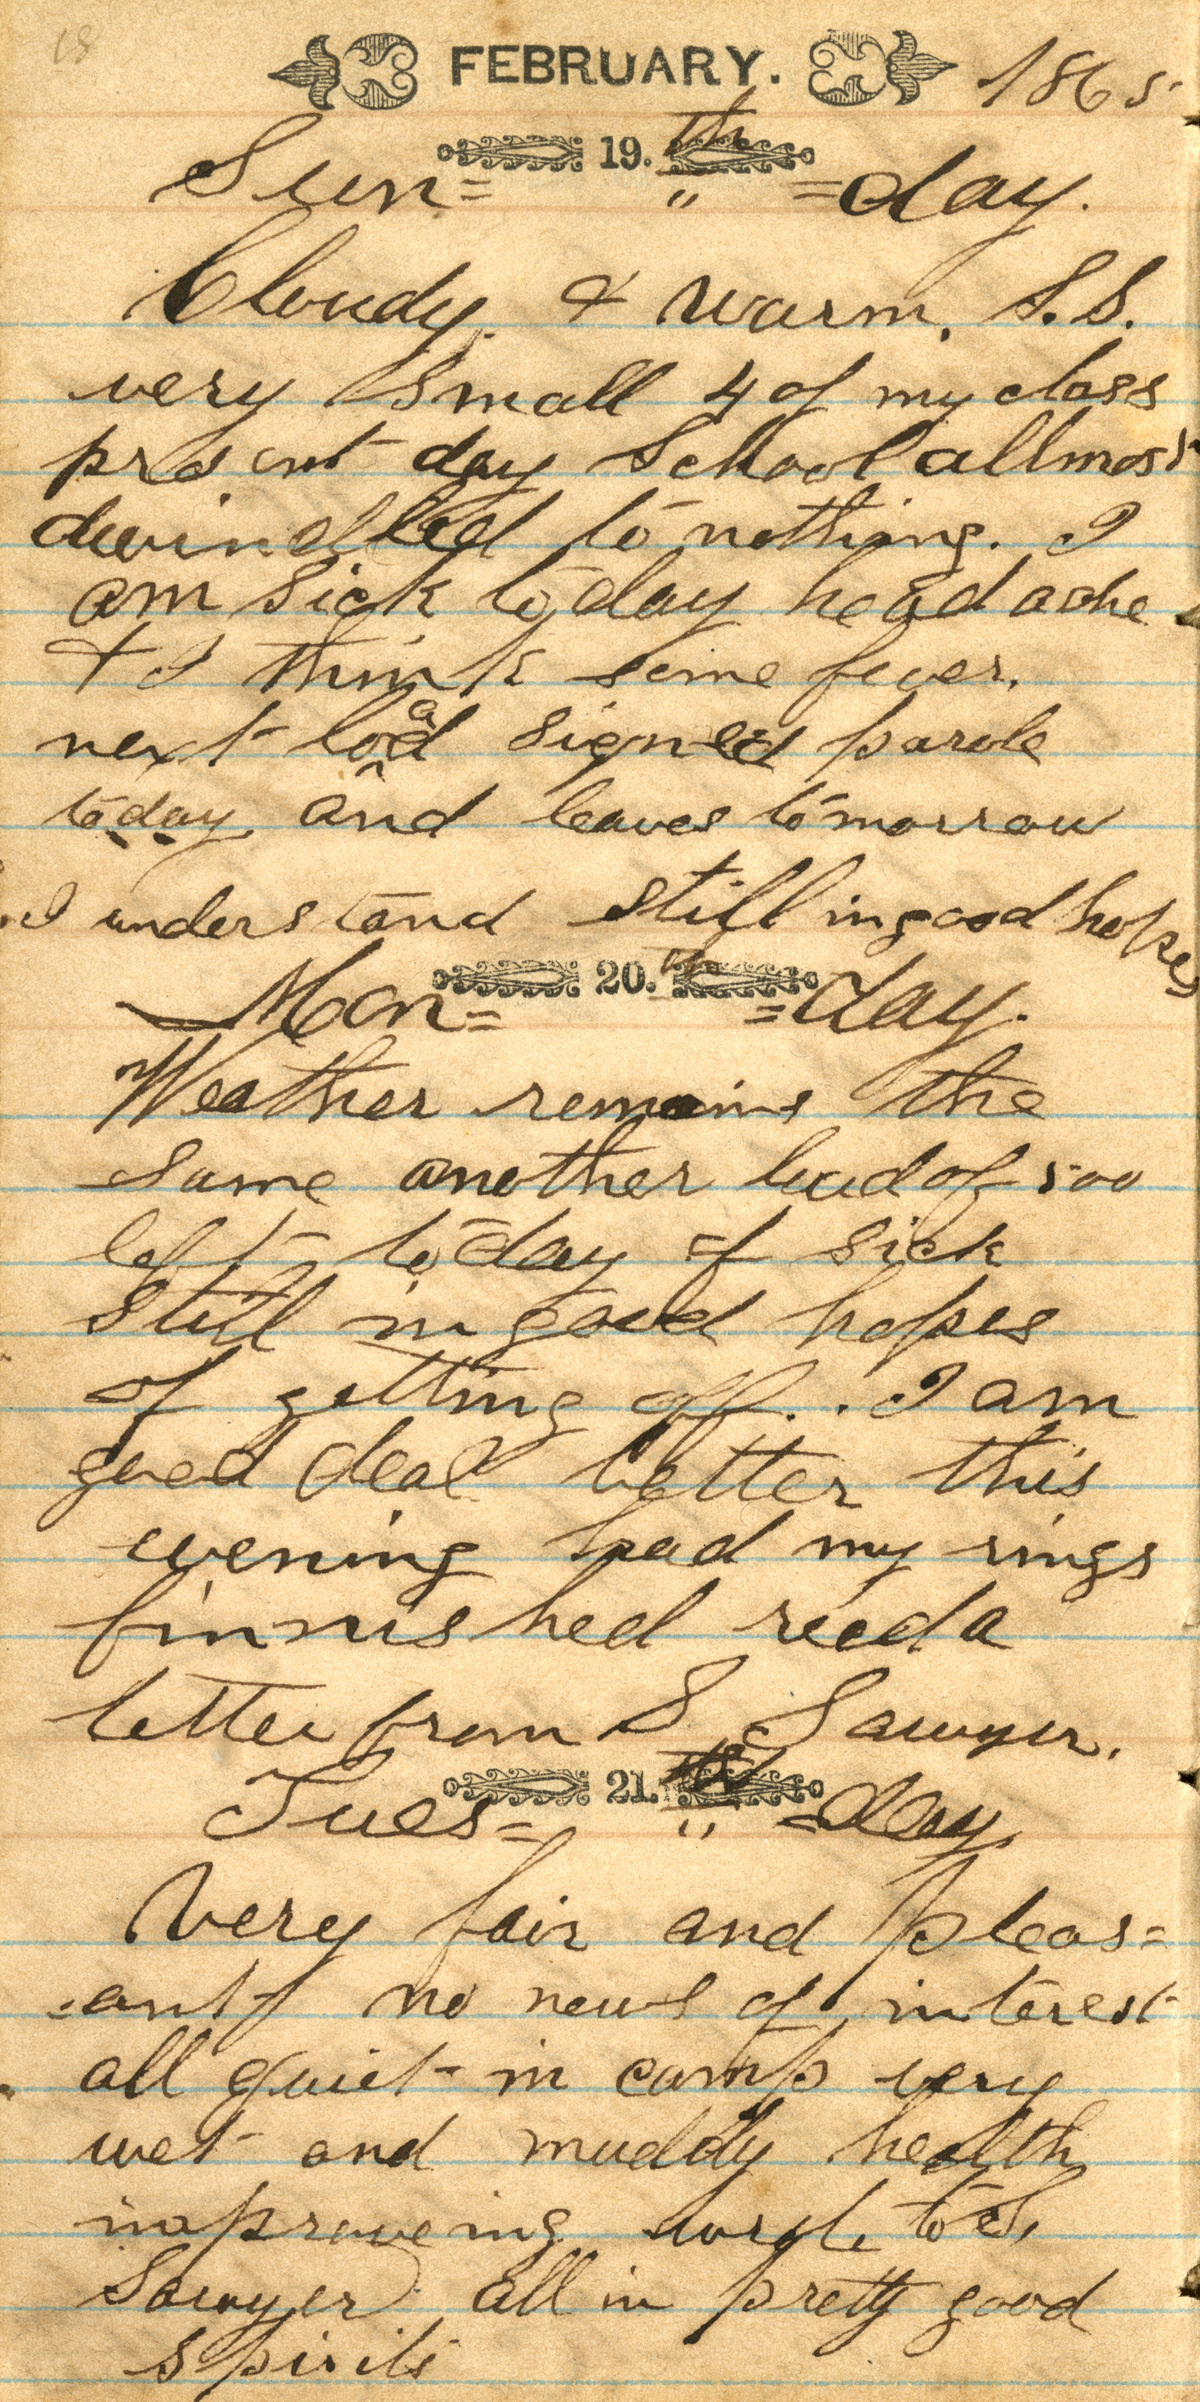 18
FEBRUARY. 1865
19. th
Sun= " =day.
Cloudy. & warm. S.S.
very small 4 of my class
present day School allmost
dwindled to nothing. I
am sick today head ache
& I think some fever.
next load signed parole
today. and leaves tomorrow
I understand still in good hopes
20. th
Mon= =day.
Weather remains the
same another load of 500
left today of sick
still in good hopes
of getting off. . I am
good deal better this
evening had my rings
finnished recd a
letter from S. Sawyer.
21. st
Tues= " =day.
Very fair and pleas=
=ant no news of interest
all quiet in camp very
wet and muddy health
improveing wrote to S.
Sawyer all in pretty good
spirits